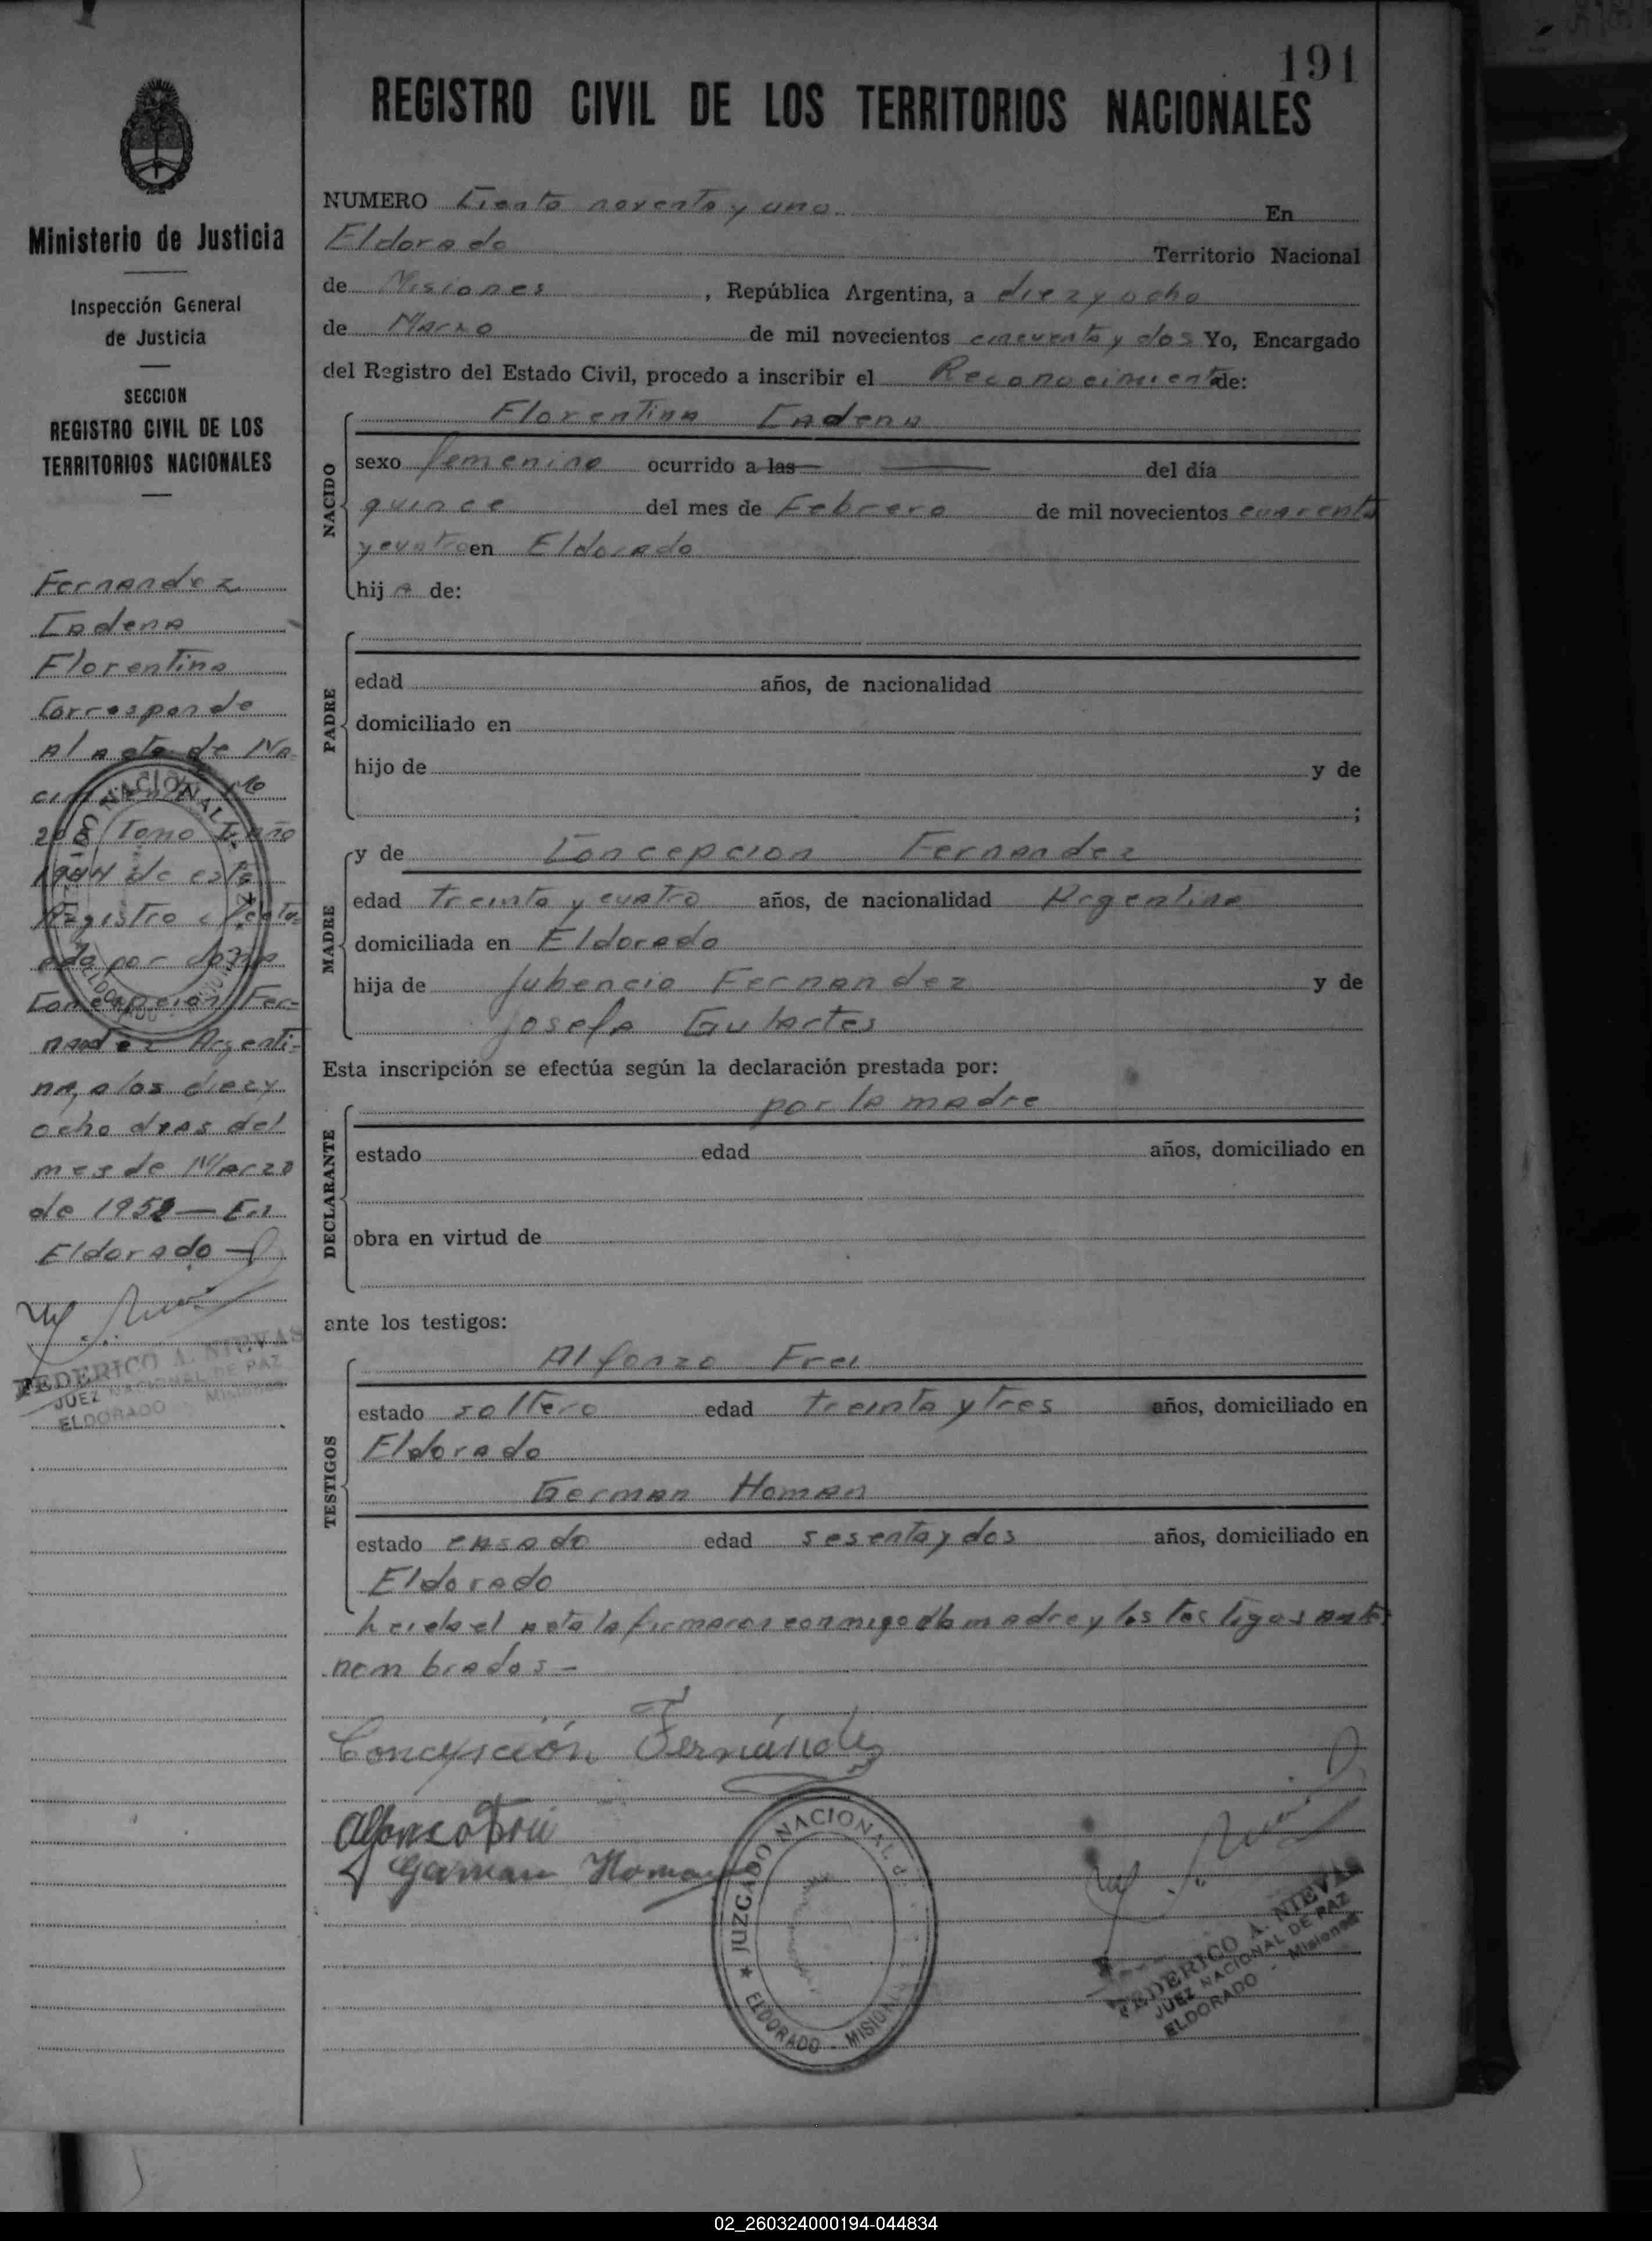 191
REGISTRO CIVIL DE LOS TERRITORIOS NACIONALES
Ministerio de Justicia
Inspección General
de Justicia
SECCION
REGISTRO CIVIL DE LOS
TERRITORIOS NACIONALES
Fernandez
Cadena
Florentina
Corresponde
al acta de Na-
cimiento No
208 Tomo I año
1944 de este
Registro efectu-
ada por doña
Concepcion Fer-
nandez Argenti-
na, a los diez y
ocho dias del
mes de Marzo
de 1952 — En
Eldorado —
FEDERICO A. NIEVAS
JUEZ NACIONAL DE PAZ
ELDORADO - Misiones
NUMERO Ciento noventa y uno. En
Eldorado Territorio Nacional
de Misiones, República Argentina, a diez y ocho
de Marzo de mil novecientos cincuenta y dos Yo, Encargado
del Registro del Estado Civil, procedo a inscribir el Reconocimiento de:
Florentina Cadena
NACIDO
sexo femenino ocurrido a las — del día
quince del mes de Febrero de mil novecientos cuarenta
y cuatro en Eldorado
hija de:
PADRE
edad años, de nacionalidad
domiciliado en
hijo de y de
;
MADRE
y de Concepcion Fernandez
edad treinta y cuatro años, de nacionalidad Argentina
domiciliada en Eldorado
hija de Jubencio Fernandez y de
Josefa Gulartes
Esta inscripción se efectúa según la declaración prestada por:
por la madre
DECLARANTE
estado edad años, domiciliado en
obra en virtud de
ante los testigos:
Alfonzo Frei
TESTIGOS
estado soltero edad treinta y tres años, domiciliado en
Eldorado
German Homan
estado casado edad sesenta y dos años, domiciliado en
Eldorado
el acta la firmaron conmigo la madre y los testigos ante
nombrados —
Concepción Fernández
German Homan
JUZGADO NACIONAL de
ELDORADO - MISIONES
FEDERICO A. NIEVAS
JUEZ NACIONAL DE PAZ
ELDORADO - Misiones
02_260324000194-044834